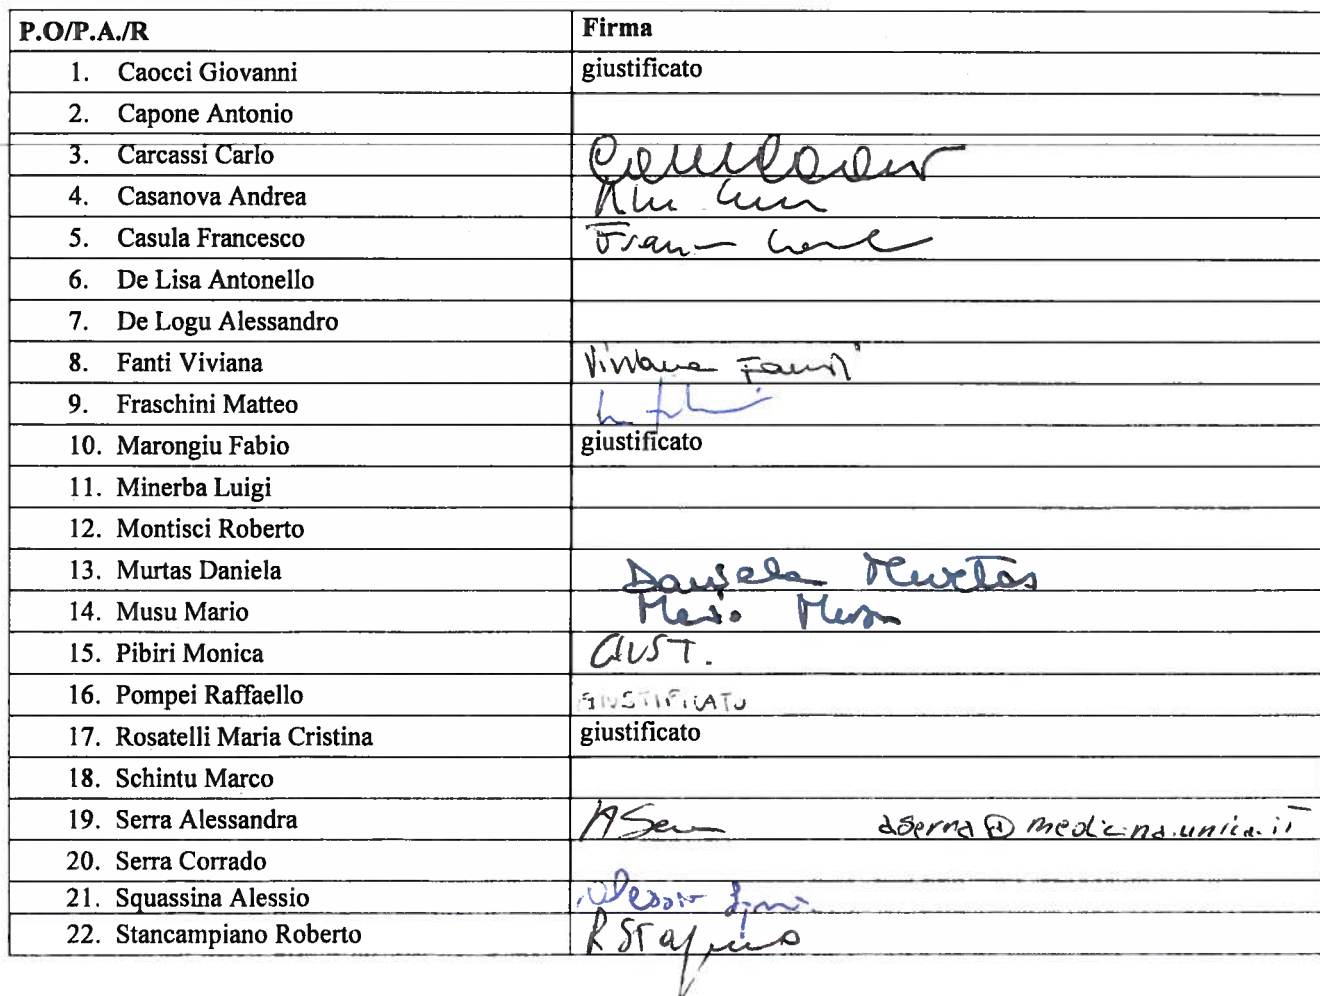 P.O/P.A./R Firma
1. Caocci Giovanni giustificato
2. Capone Antonio
3. Carcassi Carlo
4. Casanova Andrea
5. Casula Francesco
6. De Lisa Antonello
7. De Logu Alessandro
8. Fanti Viviana Viviana Fanti
9. Fraschini Matteo
10. Marongiu Fabio giustificato
11. Minerba Luigi
12. Montisci Roberto
13. Murtas Daniela Daniela Murtas
14. Musu Mario Mario Musu
15. Pibiri Monica GIUST.
16. Pompei Raffaello GIUSTIFICATO
17. Rosatelli Maria Cristina giustificato
18. Schintu Marco
19. Serra Alessandra aserra@medicina.unica.it
20. Serra Corrado
21. Squassina Alessio
22. Stancampiano Roberto